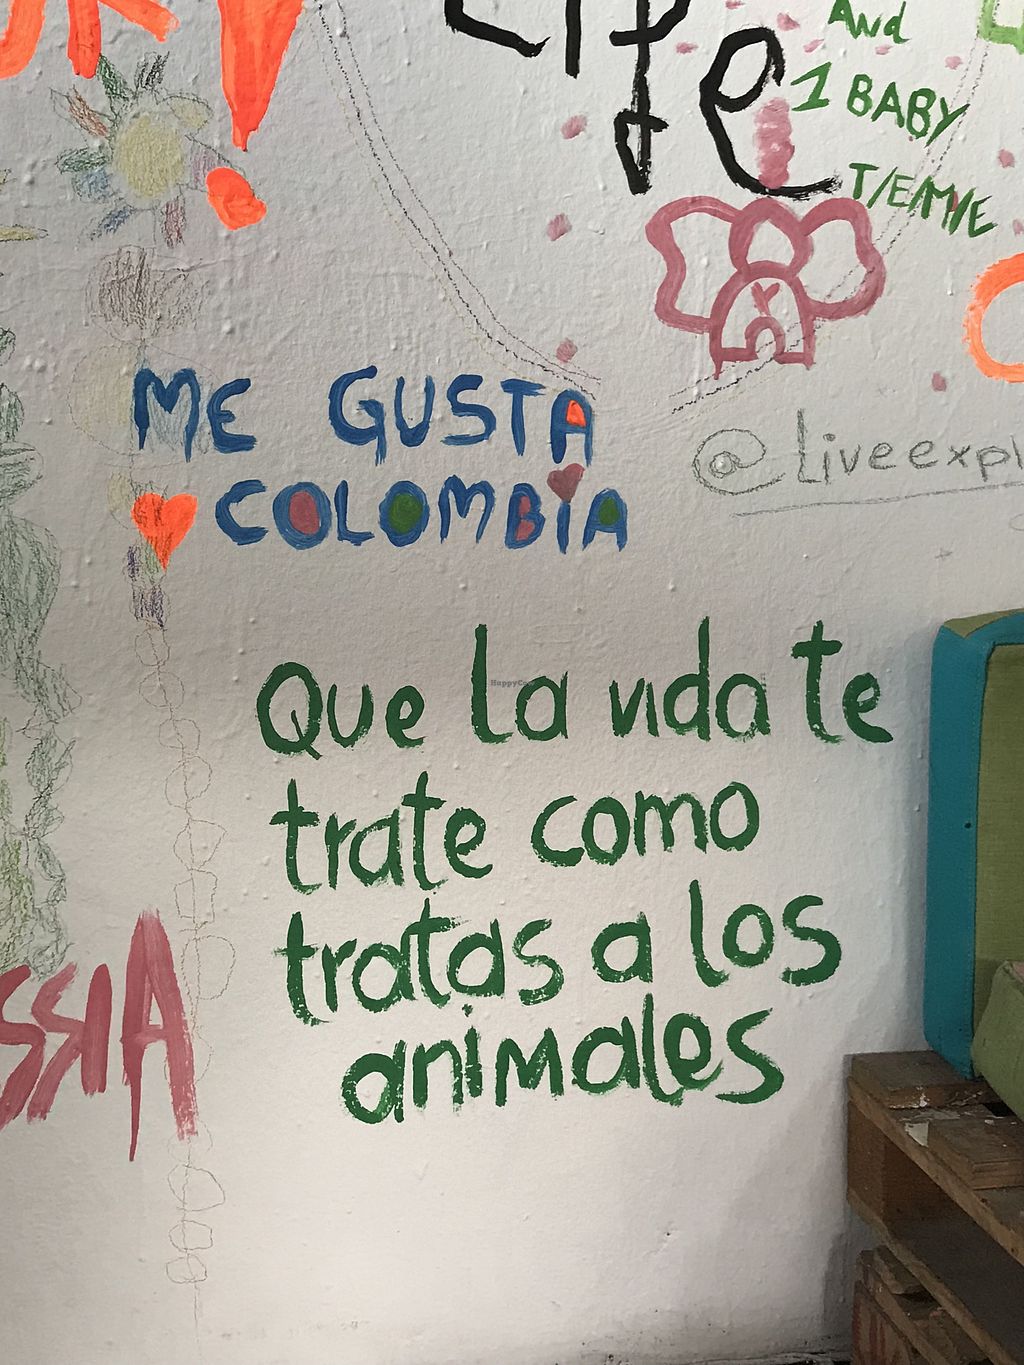 Life
And
1 BABY
T/E/M/E
ME GUSTA
COLOMBIA
@Liveexpl
Que la vida te
trate como
tratas a los
animales
SSIA
HappyCow